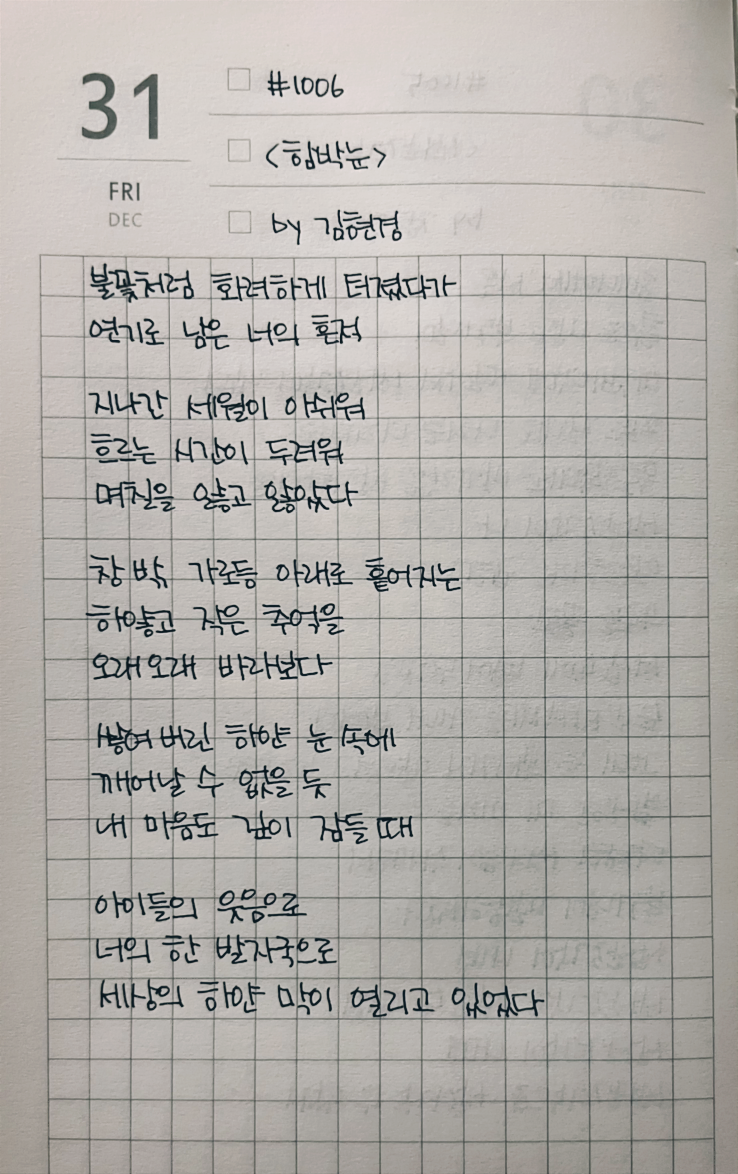 31
FRI
DEC
#1006
<함박눈>
by 김현경
불꽃처럼 화려하게 터졌다가
연기로 남은 너의 흔적
지나간 세월이 아쉬워
흐르는 시간이 두려워
며칠을 앓고 앓았다
창 밖, 가로등 아래로 흩어지는
하얗고 작은 추억을
오래오래 바라보다
쌓여 버린 하얀 눈 속에
깨어날 수 없을 듯
내 마음도 깊이 잠들 때
아이들의 웃음으로
너의 한 발자국으로
세상의 하얀 막이 열리고 있었다